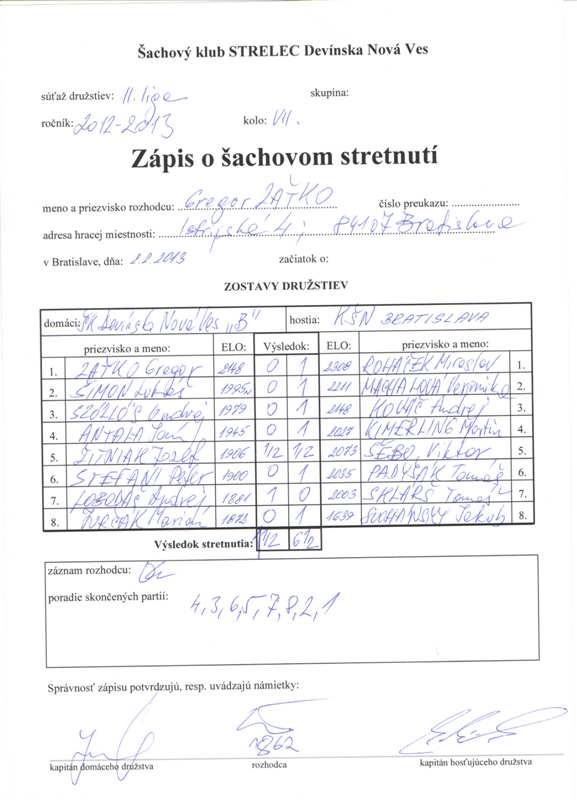 Šachový klub STRELEC Devínska Nová Ves
súťaž družstiev: II. liga skupina:
ročník: 2012-2013 kolo: VII.
Zápis o šachovom stretnutí
meno a priezvisko rozhodcu: Gregor ZAŤKO číslo preukazu:
adresa hracej miestnosti: Istrijská 4, 84107 Bratislava
v Bratislave, dňa: 2.2.2013 začiatok o:
ZOSTAVY DRUŽSTIEV
domáci: ŠK Devínska Nová Ves "B" hostia: KŠN BRATISLAVA
priezvisko a meno: ELO: Výsledok: ELO: priezvisko a meno:
1. ZAŤKO Gregor 2148 0 1 2308 ROHAČEK Miroslav 1.
2. ŠIMON Lukáš 1995 0 1 2211 MAGNALOVÁ Veronika 2.
3. Ondrej 1979 0 1 2148 KOVÁČ Andrej 3.
4. ANTALA 1945 0 1 KIMERLING Martin 4.
5. ŽITNIAK Jozef 1906 1/2 1/2 2073 ŠEBO, Viktor 5.
6. STEFANI Peter 1900 0 1 2035 PADYŠÁK Tomáš 6.
7. LOBODÁŠ Andrej 1881 1 0 2003 Tomáš 7.
8. Marián 1872 0 1 1639 SUCHANSKY Jakub 8.
Výsledok stretnutia: 1 1/2 6 1/2
záznam rozhodcu:
poradie skončených partií: 4,3,6,5,7,8,2,1
Správnosť zápisu potvrdzujú, resp. uvádzajú námietky:
1862
kapitán domáceho družstva rozhodca kapitán hosťujúceho družstva